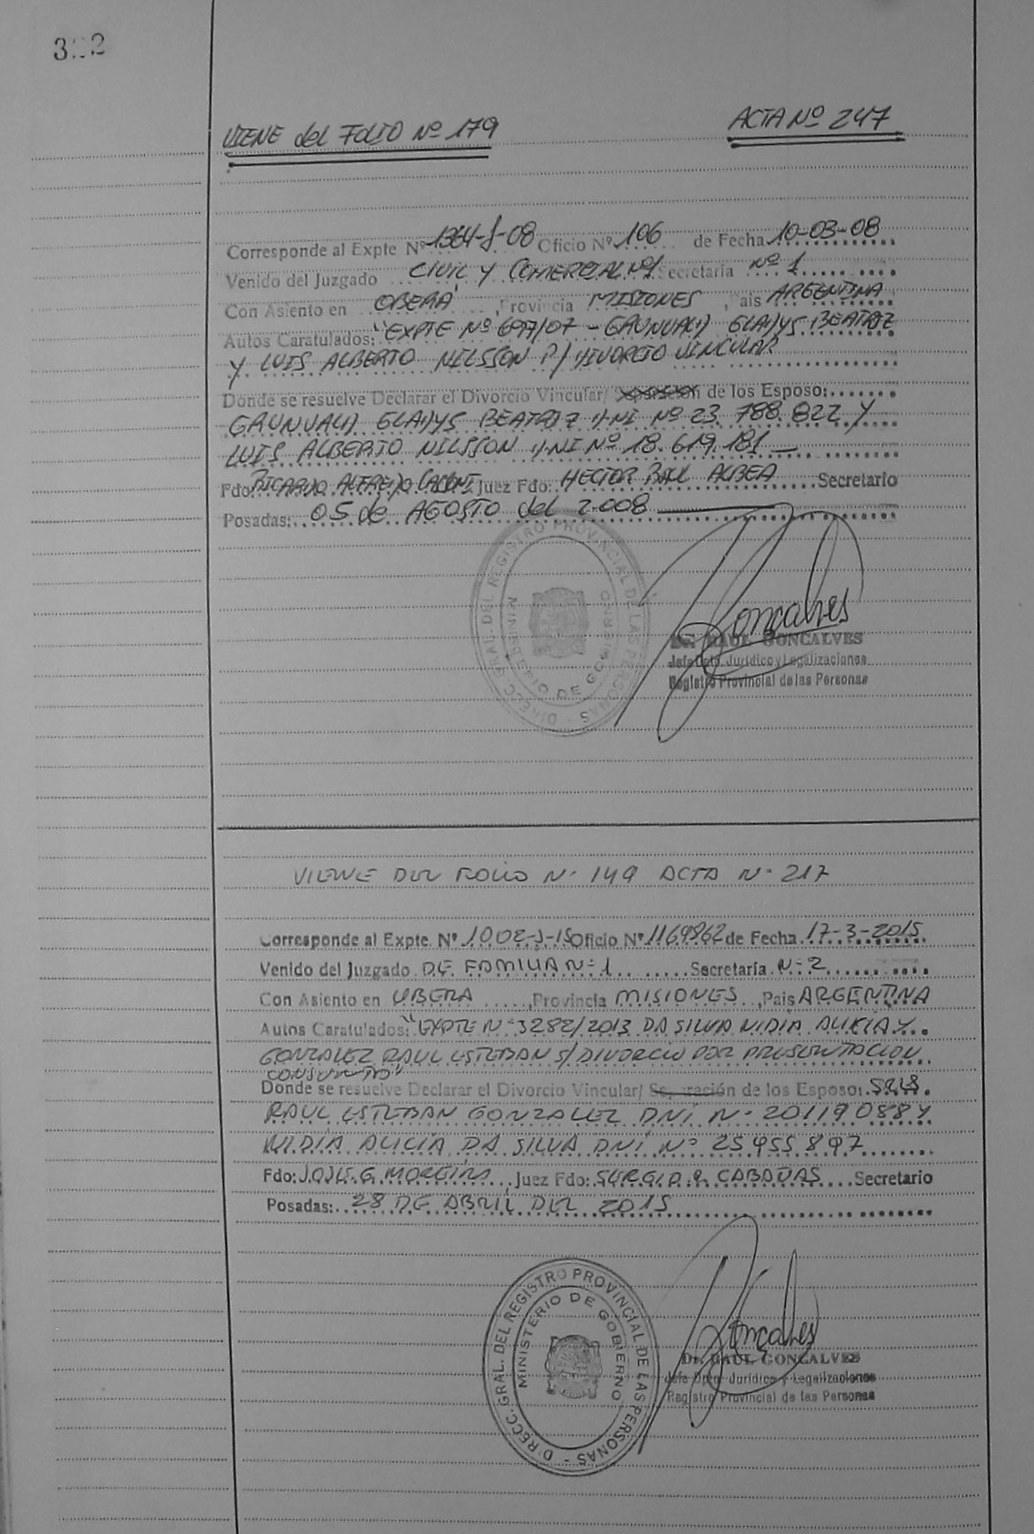 322
VIENE del FOLIO Nº 179
ACTA Nº 247
Corresponde al Expte Nº 1364-J-08 Oficio Nº 106 de Fecha 10-03-08
Venido del Juzgado CIVIL Y COMERCIAL Nº1 Secretaría Nº 1
Con Asiento en OBERÁ, Provincia MISIONES, Pais ARGENTINA
Autos Caratulados: "EXPTE Nº 697/07 - GRUNVALD GLADYS BEATRIZ
Y LUIS ALBERTO NILSSON P/ DIVORCIO VINCULAR
Donde se resuelve Declarar el Divorcio Vincular/ de los Esposo:
GRUNVALD GLADYS BEATRIZ DNI Nº 23.788.822 Y
LUIS ALBERTO NILSSON DNI Nº 18.619.181
Fdo: RICARDO ALFREDO Juez Fdo: HECTOR Secretario
Posadas: 05 de AGOSTO del 2.008
DIRECC. GRAL. DEL REGISTRO PROVINCIAL DE LAS PERSONAS
MINISTERIO DE GOBIERNO
Gonçalves
Dr. RAUL GONCALVES
Jefe Dpto. Jurídico y Legalizaciones
Registro Provincial de las Personas
VIENE DEL FOLIO N- 149 ACTA N- 217
Corresponde al Expte. Nº 1002-J-15 Oficio Nº 1169862 de Fecha 17-3-2015
Venido del Juzgado DE FAMILIA N-1 Secretaría N-2
Con Asiento en OBERA, Provincia MISIONES, Pais ARGENTINA
Autos Caratulados: "EXPTE N-3282/2013 DA SILVA NIDIA ALICIA Y
GONZALEZ RAUL ESTEBAN S/DIVORCIO POR PRESENTACION
CONJUNTA"
Donde se resuelve Declarar el Divorcio Vincular/ Separación de los Esposo: SRES.
RAUL ESTEBAN GONZALEZ DNI Nº 20119088 Y
NIDIA ALICIA DA SILVA DNI Nº 25955897
Fdo: JOSE G. MOREIRA Juez Fdo: SERGIO R. CABAÑAS Secretario
Posadas: 28 DE ABRIL DEL 2015
DIRECC. GRAL. DEL REGISTRO PROVINCIAL DE LAS PERSONAS
MINISTERIO DE GOBIERNO
Gonçalves
Dr. RAUL GONCALVES
Jefe Dpto. Jurídico y Legalizaciones
Registro Provincial de las Personas